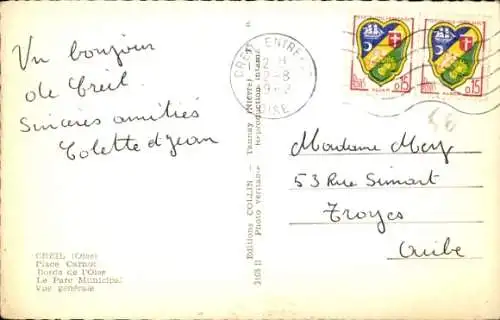 Un bonjour
de Creil.
Sincères amitiés
Colette et Jean
CREIL (Oise)
Place Carnot
Bords de l'Oise
Le Parc Municipal
Vue générale
Editions COLLIN - Tannay (Nièvre)
Photo véritable Reproduction interdite
CREIL ENTREPOT
OISE
0,15
ALGER
0,15
ALGER
Madame Mey
53 Rue Simart
Troyes
Aube